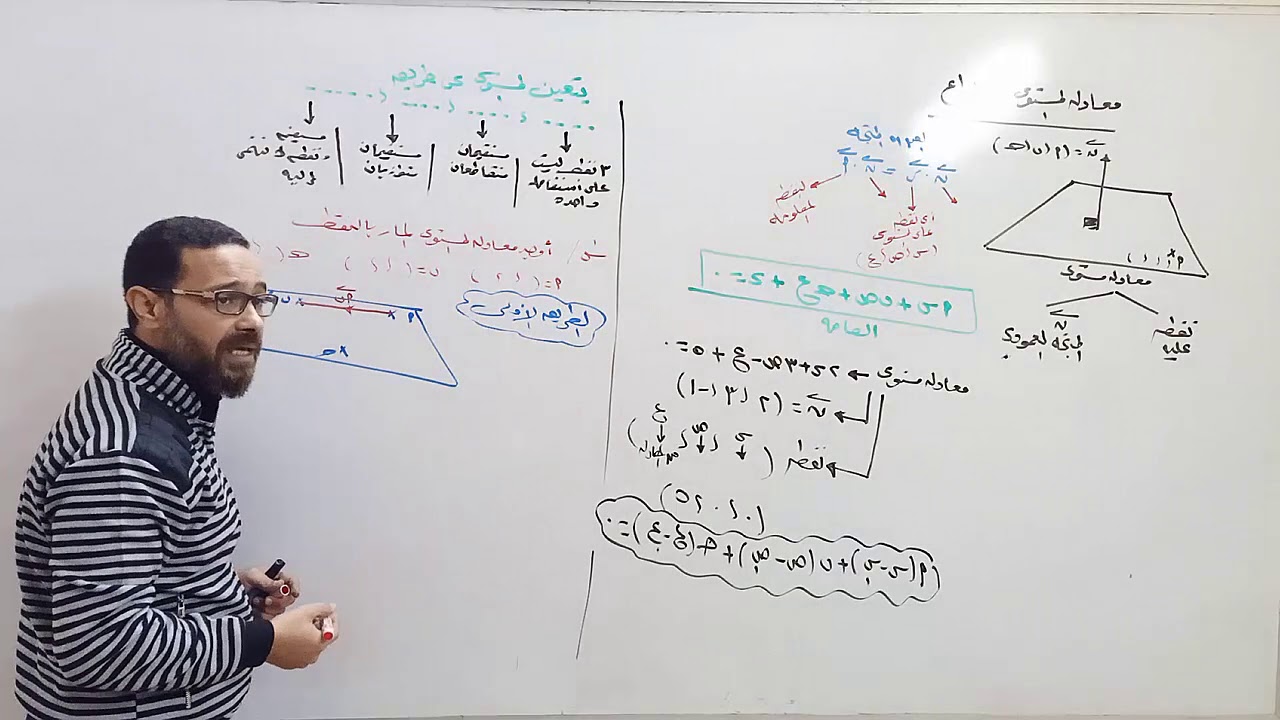 معادله المستوى
ن = (أ ، ب ، حـ)
أ ( ، ، )
معادله مستوى
نقطه عليه
المتجه العمودي ن
الصوره المتجهه
ن . ر = ن . أ
النقطه المعلومه
أى نقطه على المستوى (س ، ص ، ع)
أ س + ب ص + حـ ع + د = ٠
العامه
معادله مستوى ← ٢س + ٣ص - ع + ٥ = ٠
ن = (٢ ، ٣ ، -١)
نقطه (س ، ص ، ع)
من المعادله
(٠ ، ٠ ، ٥)
أ(س - س) + ب(ص - ص) + حـ(ع - ع) = ٠
يتعين المستوى عن طريق
٣ نقط ليست على استقامه واحده
مستقيمان متقاطعان
مستقيمان متوازيان
مستقيم ونقطه لا تنتمى إليه
س/ أوجد معادله المستوى المار بالنقط
أ = ( ، ، ) ب = ( ، ، ) حـ (
الطريقه الأولى
أ ب ب أ
حـ